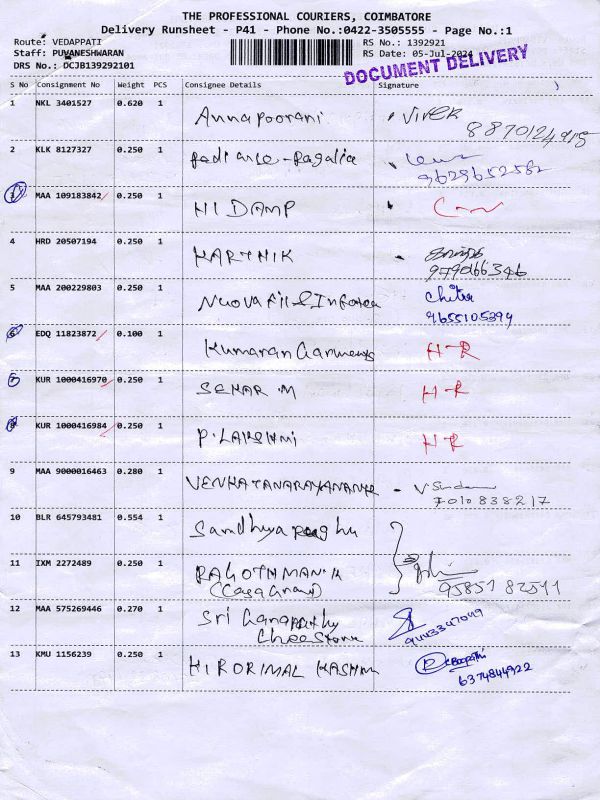 THE PROFESSIONAL COURIERS, COIMBATORE
Delivery Runsheet - P41 - Phone No.:0422-3505555 - Page No.:1
Route: VEDAPPATI
Staff: PUVANESHWARAN
DRS No.: DCJB139292101
RS No.: 1392921
RS Date: 05-Jul-2024
DOCUMENT DELIVERY
S No Consignment No Weight PCS Consignee Details Signature
1 NKL 3401527 0.620 1 Annapoorani Vivek
8870124915
2 KLK 8127327 0.250 1
9629652582
3 MAA 109183842 0.250 1 NIDAMP
4 HRD 20507194 0.250 1 KARTHIK
979066346
5 MAA 200229803 0.250 1 Chitra
9655105399
6 EDQ 11823872 0.100 1 Kumaran Garments H-R
7 KUR 1000416970 0.250 1 SEKAR.M H-R
8 KUR 1000416984 0.250 1 P.LAKSHMI H-R
9 MAA 9000016463 0.280 1
7010838217
10 BLR 645793481 0.554 1 Sandhya
11 IXM 2272489 0.250 1 RAGOTHMAN.K
(Casa Grand) 9585782511
12 MAA 575269446 0.270 1 Sri Ganapathy
9443347049
13 KMU 1156239 0.250 1 Boopathi
6374844922